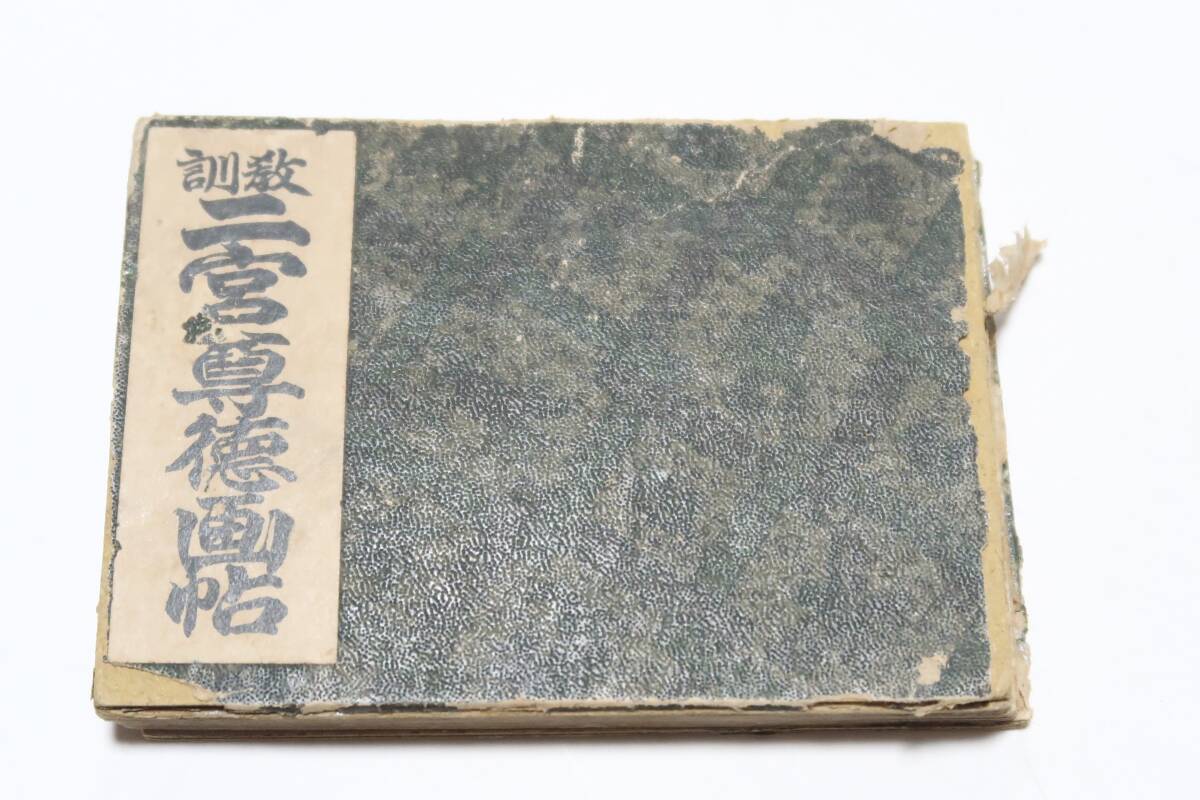 教訓
二宮尊徳画帖